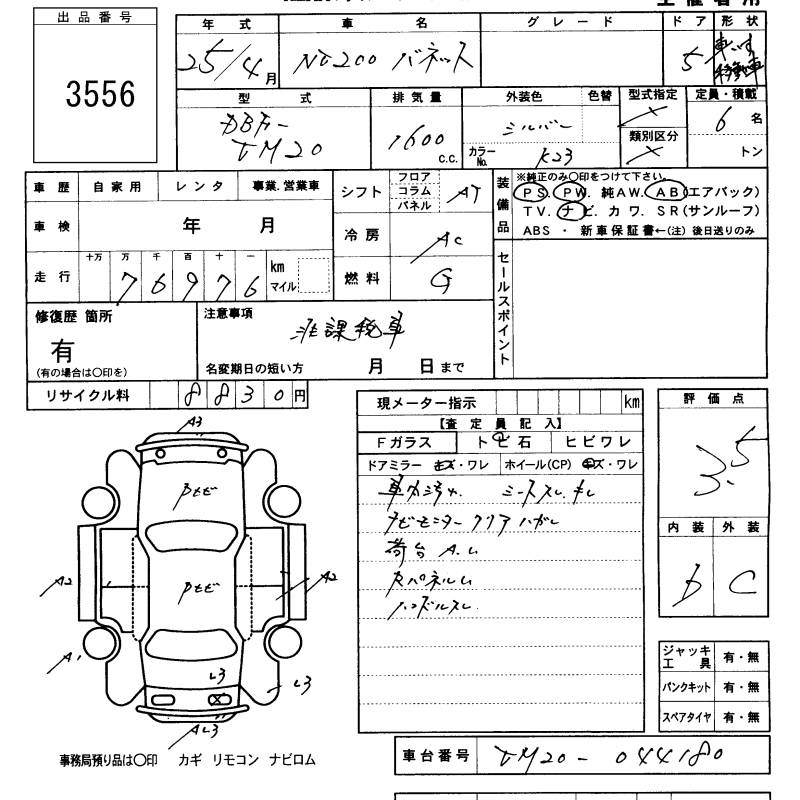 出品番号
3556
年式 車名 グレード ドア 形状
25/4月 NV200 バネット 5 車いす移動車
型式 排気量 外装色 色替 型式指定 定員・積載
DBF-VM20 1600 C.C. シルバー 6 名
カラーNo. K23 類別区分 トン
車歴 自家用 レンタ 事業.営業車
車検 年 月
走行 十万 万 千 百 十 一 km マイル
7 6 9 7 6
シフト フロア コラム パネル AT
冷房 AC
燃料 G
装備品
※純正のみ○印をつけて下さい。
PS. PW. 純AW. AB(エアバック)
TV. ナビ. カワ. SR(サンルーフ)
ABS ・ 新車保証書←(注) 後日送りのみ
セールスポイント
修復歴 箇所
有
(有の場合は○印を)
注意事項
非課税車
名変期日の短い方 月 日まで
リサイクル料 8830円
現メーター指示 km
【査定員記入】
Fガラス トビ石 ヒビワレ
ドアミラー キズ・ワレ ホイール(CP) キズ・ワレ
車内汚れ シートスレ.キレ
ナビモニタークリアハガレ
荷台A.U
内パネルU
ハンドルスレ
評価点
3.5
内装 外装
D C
ジャッキ 工具 有・無
パンクキット 有・無
スペアタイヤ 有・無
A3
A2
A2
A1
L3
L3
AL3
X
事務局預り品は○印 カギ リモコン ナビロム
車台番号 VM20-044180